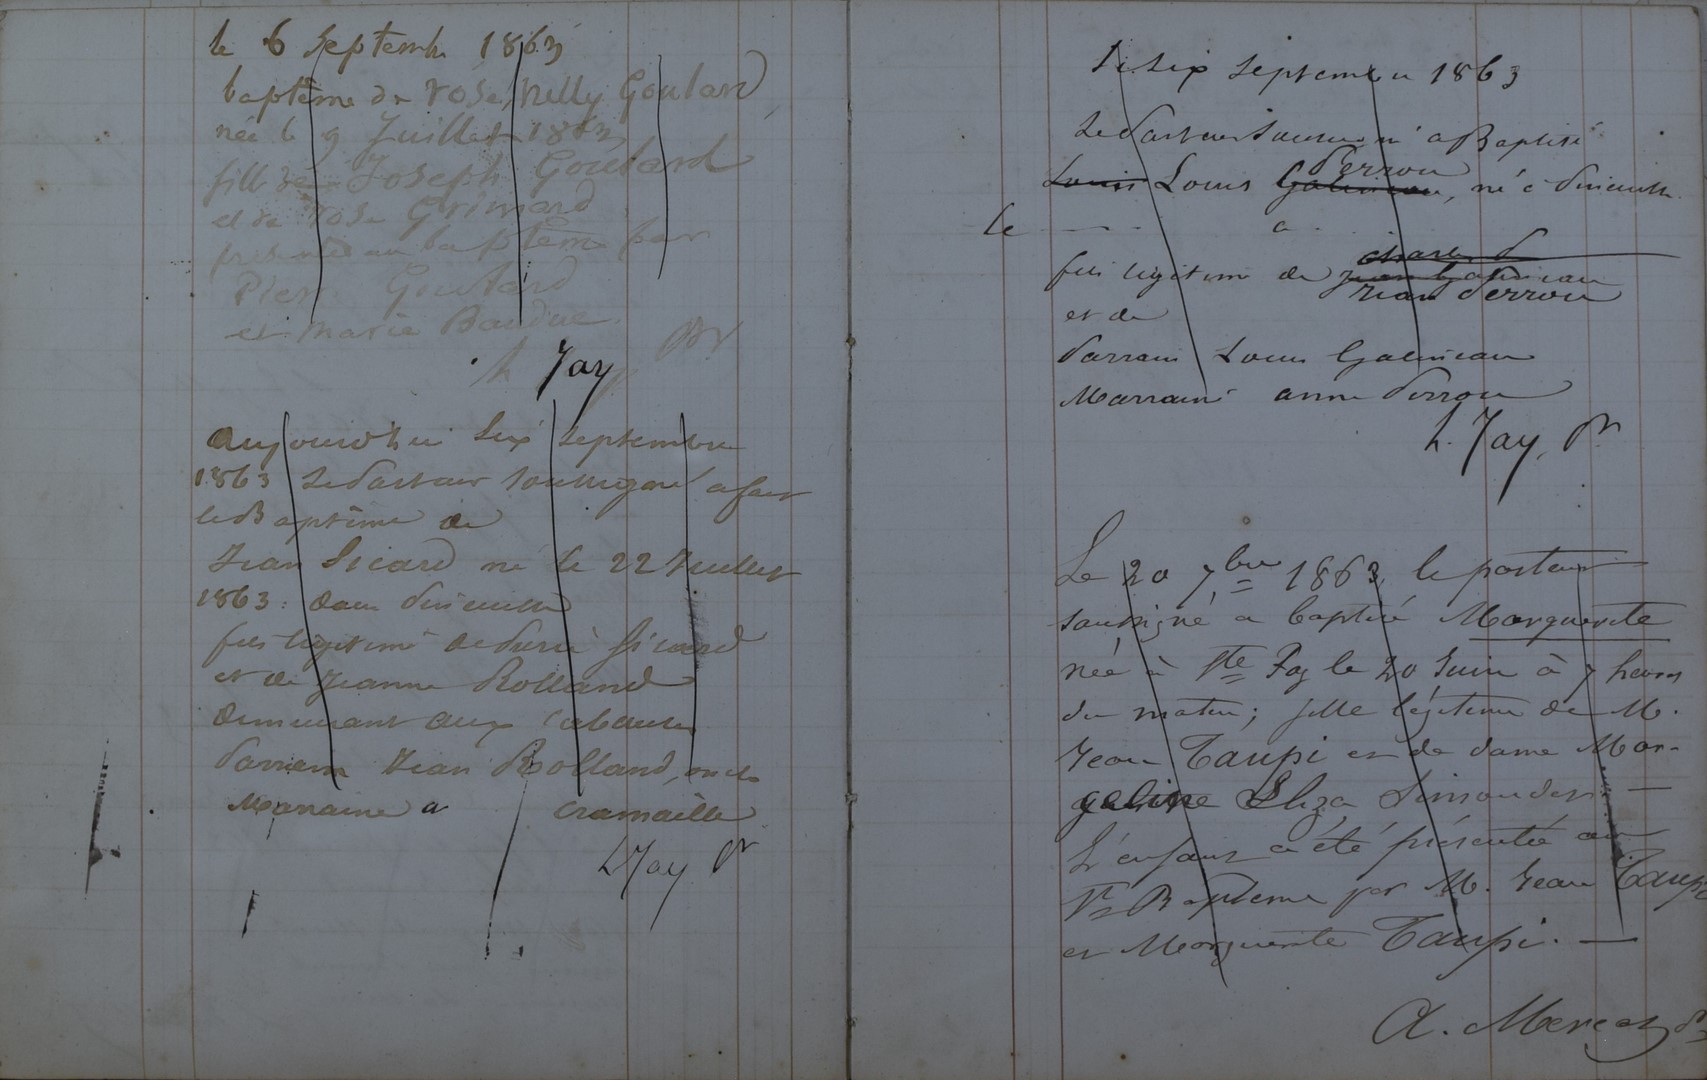 le 6 Septembre 1863
baptême de rose, Nelly Goulard,
née le 9 Juillet 1863
fille de Joseph Goulard
et de rose Grimard
présentée au baptême par
Pierre Goulard
et Marie Baudue
h Jay pr
Aujourd'hui Six Septembre
1863 Le Pasteur Soussigné a fait
le Baptême de
Jean Sicard né le 22 Juillet
1863
fils légitime de Pierre Sicard
et de Jeanne Rolland
demeurant aux
Parrain Jean Rolland, oncle
Marraine a Cramaille
h Jay pr
Le Six Septembre 1863
Le Pasteur Soussigné a Baptisé
Louis Louis Galineau Perrou, né à
le a
fils légitime de Jean Galineau
Jean Perrou
et de
Parrain Louis Galineau
Marraine anne Perrou
h. Jay, pr
Le 20 7bre 1863 le pasteur
soussigné a baptisé Marguerite
née à Ste Foy le 20 Juin à 7 heures
du matin; fille légitime de M.
Jean Taupi et de dame Mar-
geline Eliza
L'enfant a été présentée au
St Baptême par M. Jean Taupi
et Marguerite Taupi. —